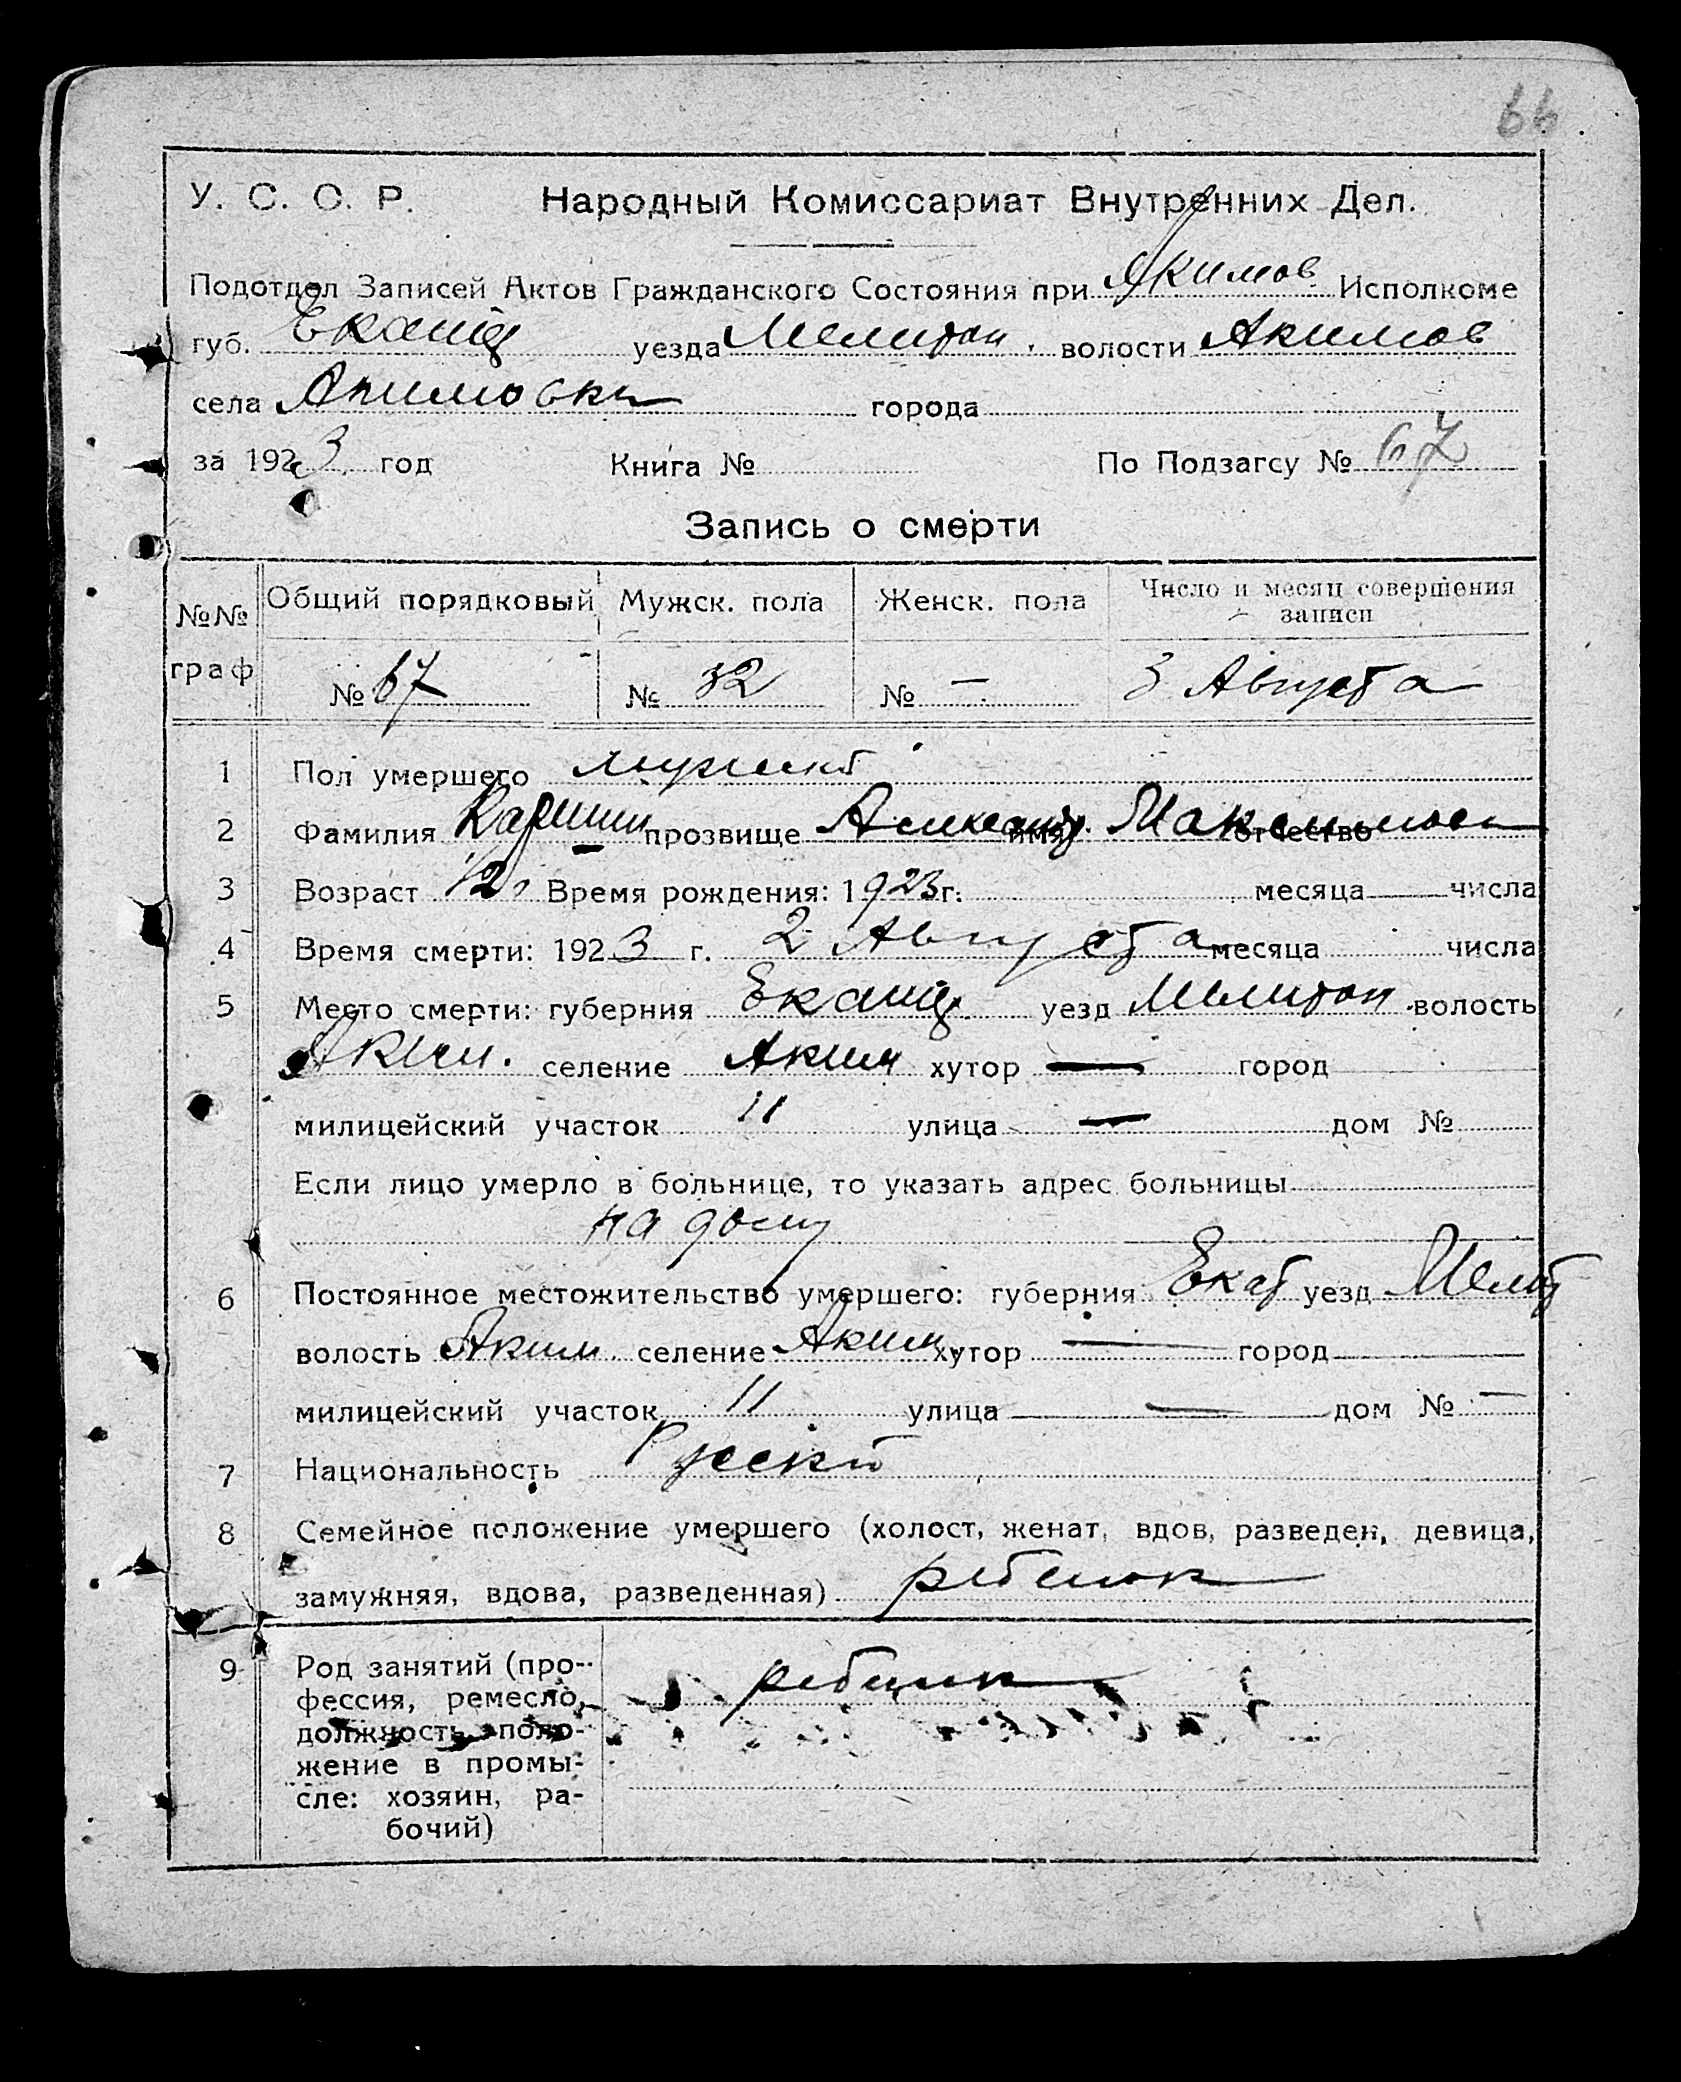 66
У. С. С. Р. Народный Комиссариат Внутренних Дел.
Подотдел Записей Актов Гражданского Состояния при Акимов. Исполкоме
губ. уезда Мелитоп. волости Акимов
села Акимовки города
за 1923 год Книга № По Подзагсу № 67
Запись о смерти
№№ граф Общий порядковый Мужск. пола Женск. пола Число и месяц совершения записи
№ 67 № 32 № — 3 Августа
1 Пол умершего мужской
2 Фамилия Каршин прозвище Александр. имя Максимов отчество
3 Возраст Время рождения: 1923 г. месяца — числа
4 Время смерти: 1923 г. 2 Августа месяца числа
5 Место смерти: губерния уезд Мелитоп. волость
Аким. селение Аким хутор — город
милицейский участок 11 улица — дом №
Если лицо умерло в больнице, то указать адрес больницы
на дому
6 Постоянное местожительство умершего: губерния Екат уезд Мелит
волость Аким. селение Аким. хутор — город —
милицейский участок 11 улица — дом № —
7 Национальность Русский
8 Семейное положение умершего (холост, женат, вдов, разведен, девица,
замужняя, вдова, разведенная) ребенок
9 Род занятий (про- ребенок
фессия, ремесло,
должность, поло-
жение в промы-
сле: хозяин, ра-
бочий)